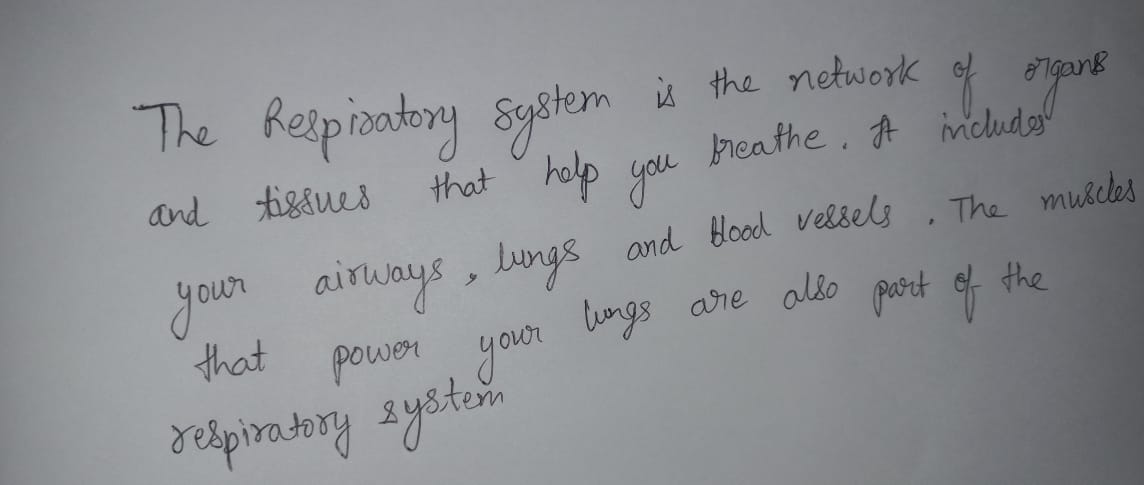 The Respiratory system is the network of organs
and tissues that help you breathe. It includes
your airways, lungs and blood vessels. The muscles
that power your lungs are also part of the
respiratory system